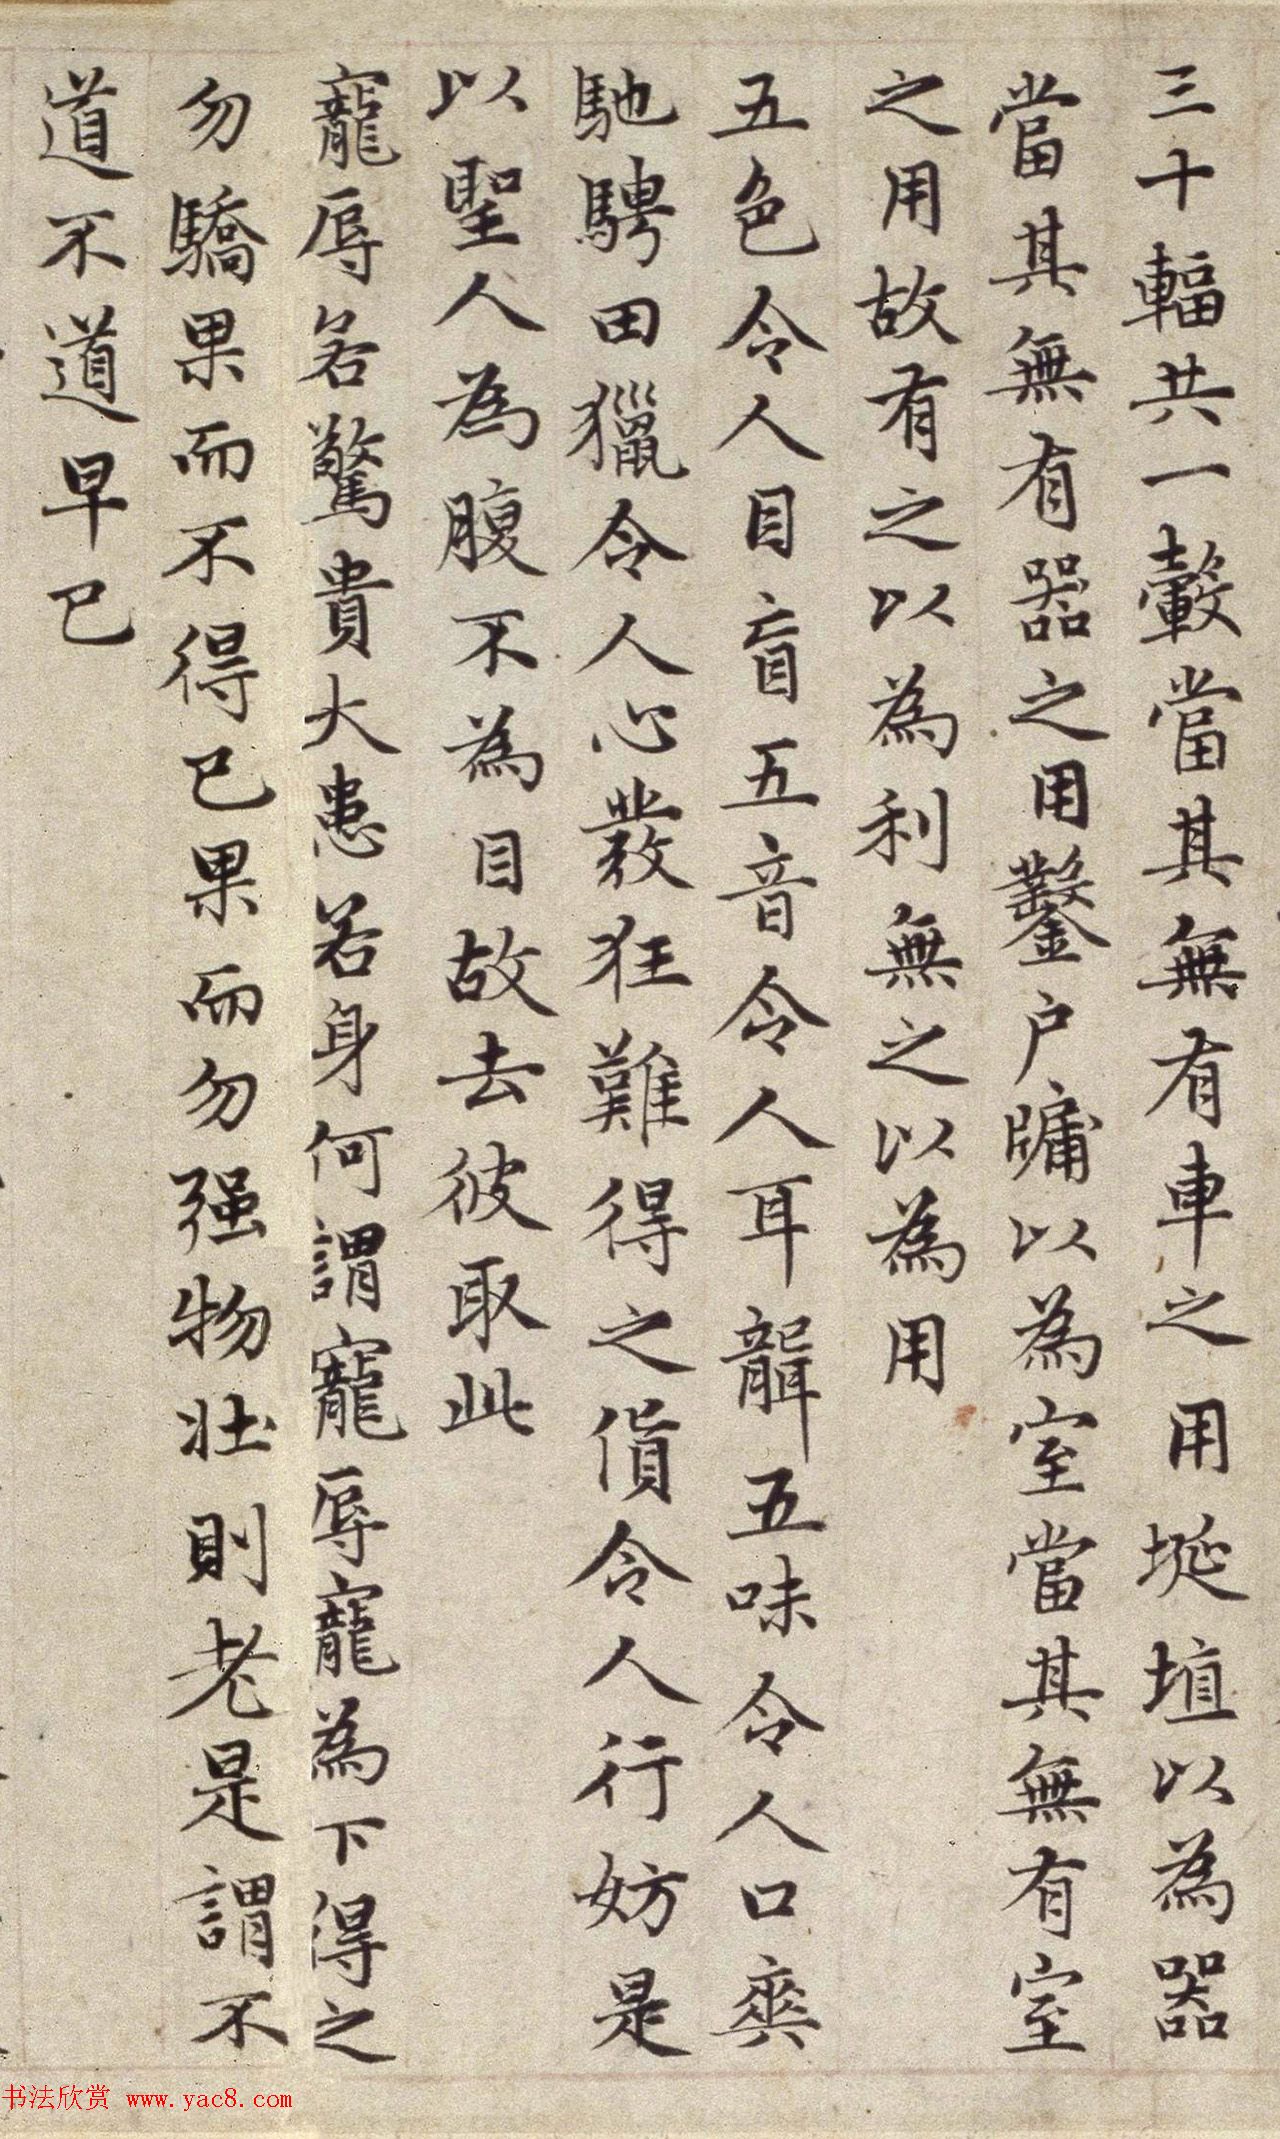 三十輻共一轂當其無有車之用埏埴以為器
當其無有器之用鑿户牗以為室當其無有室
之用故有之以為利無之以為用
五色令人目盲五音令人耳聾五味令人口爽
馳騁田獵令人心發狂難得之貨令人行妨是
以聖人為腹不為目故去彼取此
寵辱若驚貴大患若身何謂寵辱寵為下得之
勿驕果而不得已果而勿强物壮則老是謂不
道不道早已
书法欣赏 www.yac8.com